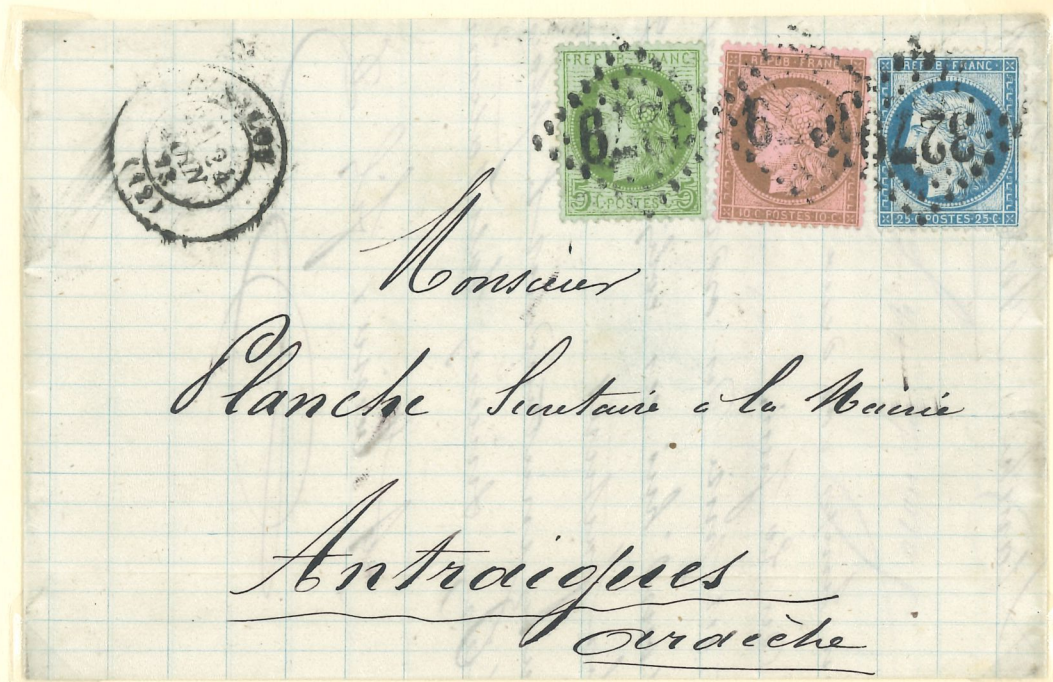 REPUB·FRANC
5 C·POSTES 5 C
REPUB·FRANC
10·C·POSTES 10·C·
REPUB·FRANC·
25·C·POSTES·25·C·
(12)
Monsieur
Planche Secretaire à la Mairie
Antraigues
ardèche